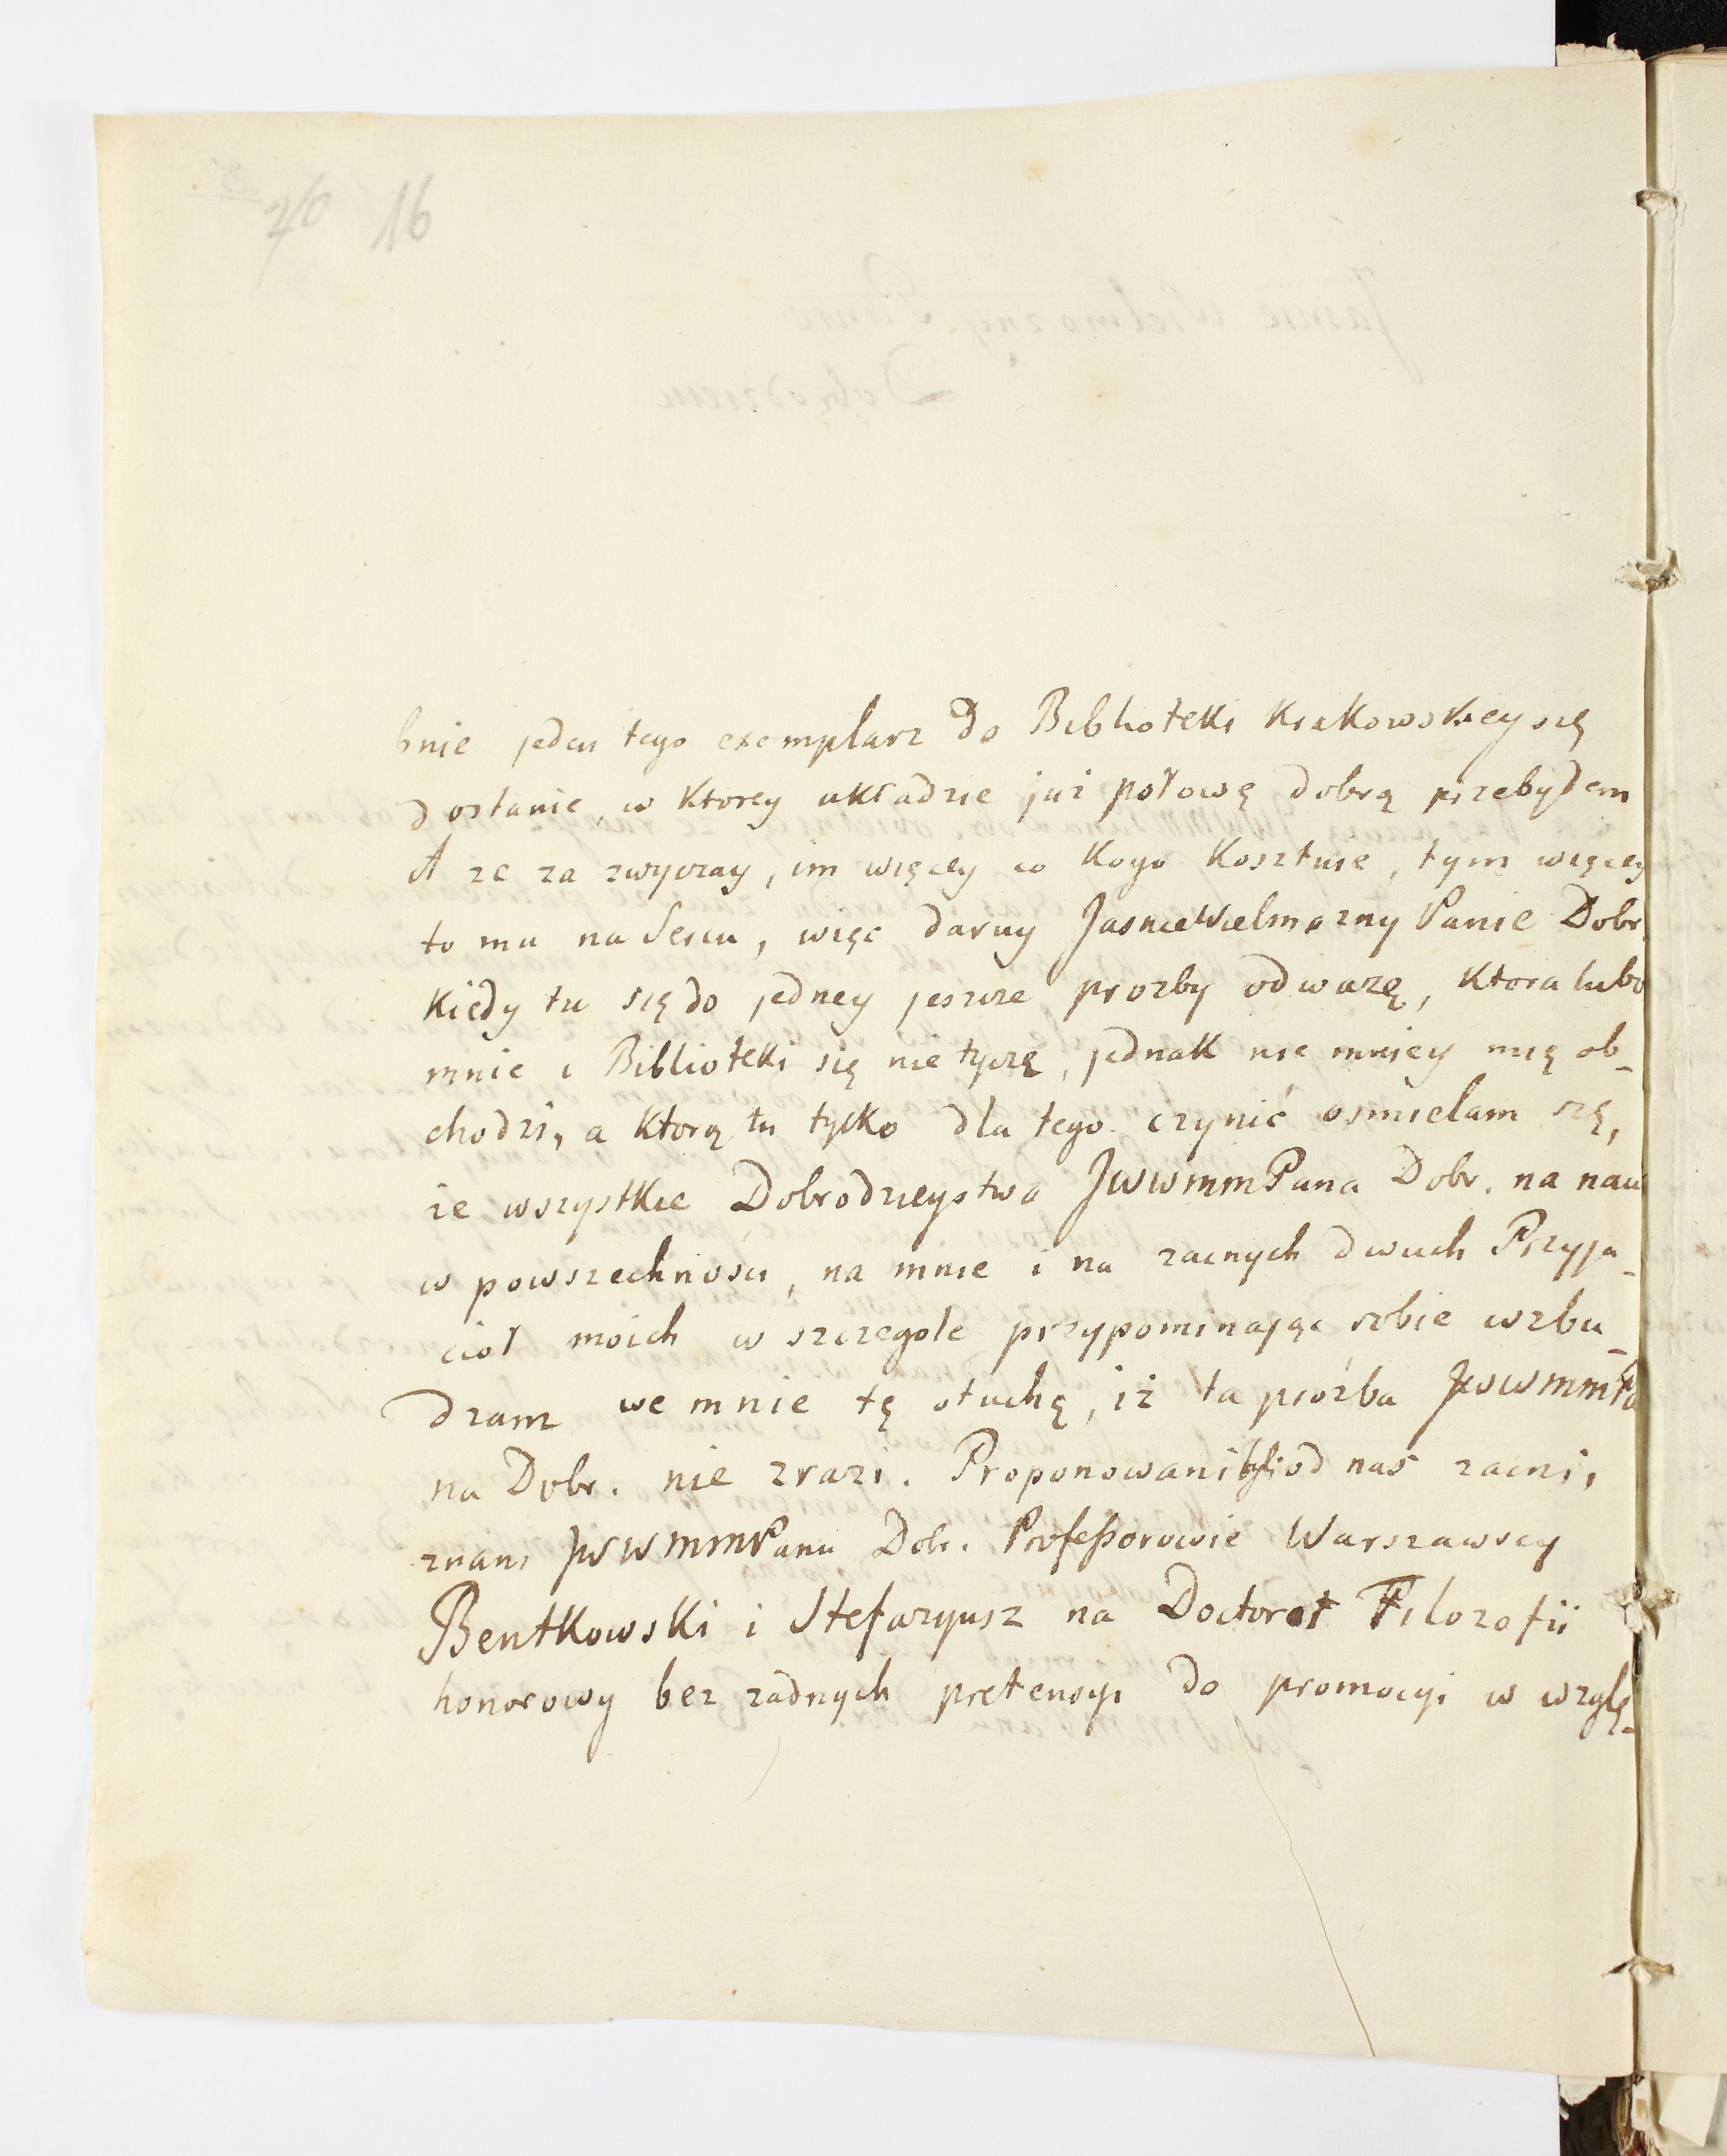 16
bnie jeden tego exemplarz do Biblioteki Krakowskiey się
dostanie, w ktorey układzie już połowę dobrą przebyłem
A ze za zwyczay, im więcey co kogo kosztuie, tym więcey
to mu na Sercu, więc daruy Jasnie Wielmozny Panie Dobr.
kiedy tu się do jedney jeszcze prozby odwazę, ktora lubo
mnie i Biblioteki się nie tyczę, jednak nie mniey mię ob-
chodzi, a ktorą tu tylko dla tego czynić osmielam szę,
ze wszystkie Dobrodzieystwa JWWMMPana Dobr. na nau
w powszechnosci, na mnie i na zacnych dwuch Przyja-
cioł moich w szczegole przypominając sobie wzbu-
dzam we mnie tę otuchę, iż ta prożba JWWMMPa
na Dobr. nie zrazi. Proponowani byli od nas zacni,
znani JWWMMPanu Dobr. Professorowie Warszawscy
Bentkowski i Stefazyusz na Doctorat Filozofii
honorowy bez zadnych pretensyi do promocyi w wzglę-